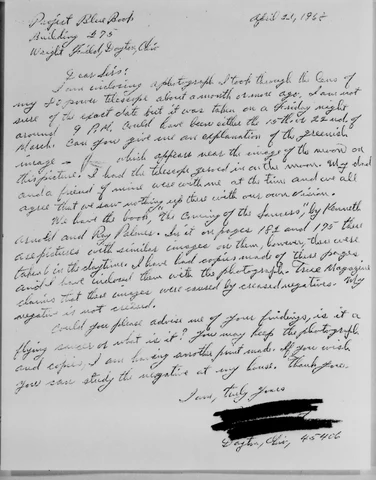 Project Blue Book
April 23, 1968
Building 275
Wright Field, Dayton, Ohio
Dear Sirs:
I am enclosing a photograph I took through the lens of
my 40 power telescope about a month or more ago. I am not
sure of the exact date but it was taken on a Friday night
around 9 P.M. Could have been either the 15th or 22nd of
March. Can you give me an explanation of the greenish
image — which appears near the image of the moon on
this picture. I had the telescope zeroed in on the moon. My dad
and a friend of mine were with me at the time and we all
agree that we saw nothing up there with our own vision.
We have the book, "The Coming of the Saucers," by Kenneth
Arnold and Ray Palmer. In it on pages 181 and 195 there
are pictures with similar images on them, however, these were
taken in the daytime. I have had copies made of these pages
and I have inclosed them with the photograph. True Magazine
claims that these images were caused by creased negatives. My
negative is not creased.
Could you please advise me of your findings, is it a
flying saucer or what is it? You may keep the photograph
and copies, I am having another print made. If you wish
you can study the negative at my house. Thank you.
I am, truly yours
Dayton, Ohio, 45406